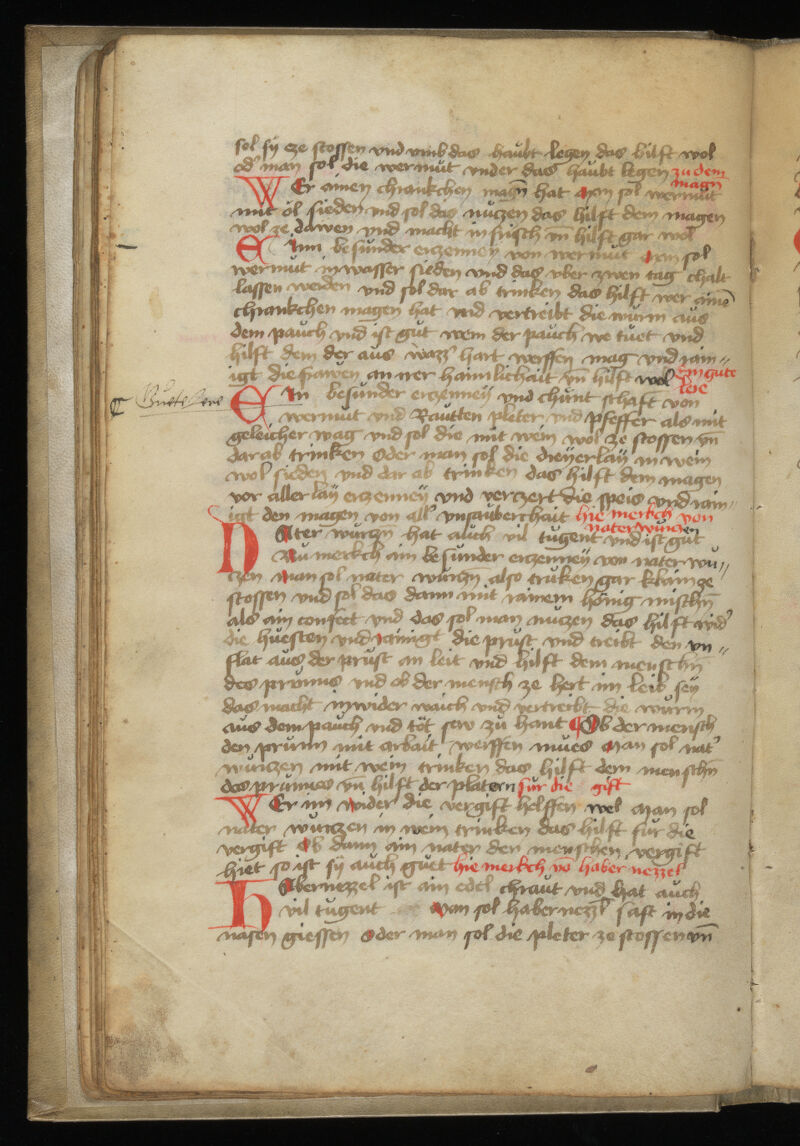 sol sy ze stossen vnd vmb das haubt legen das hilft wol
od' man sol die wermut vnder das haubt legen zu dem
magn
WEr ainen chrankchen magn hat Man sol wermut
mit öl sieden vnd sol das nuczen das hilft dem magen
wol ze dawen vnd macht in frisch vn̄ hilft gar wol
EInn besunder erczenney von wermut Man sol
wermut in wasser sieden vnd das vber zwen tag chalt
lassen werden vnd sol dar ab trinken das hilft wer aine
chrankchen magen hat vnd vertreibt die wurm aus
dem pauch vnd ist gut wem der pauch we tuet vnd
hilft dem der aus hart werffen mag vnd rain〃
igt die frawen an irer haimlichait vn̄ hilft wol ein gute
lere
EIn besunder erczenney vnd chunt schaft von
wermut vnd Rautten pleter vnd pfeffer als mit
geleicher wag vnd sol die mit wein wol ze stossen vn̄
dar ab trinken Oder man sol die dreyerlay in wein
wol sieden vnd dar ab trinken das hilft dem magen
vor allerlay erczenney vnd verczert die speis vnd rain〃
igt den magen von all' vnsauberchait hie merkch von
naterwurczen
NAter wurczn hat auch vil tugent vnd ist gut
Nu merkch ain besunder erczenney von nater wu〃
czen Man sol nater wurczn also truken gar klain ze
stossen vnd sol das dann mit rainem hönig mischn̄
als ain confect vnd das sol man nuczen das hilft wid'
die huesten vnd rainigt die prust vnd treibt den vn〃
flat aus der prust an leit vnd hilft dem menschn̄
des prunns vnd ob der mensch ze hert im leib sey
das macht in wider waich vnd vertreibt die wurm
aus dem pauch vnd töt sew zu hant Ob der mensch
den prunn mit arbait werffen mues Man sol nat'
wurczen mit wein trinken das hilft dem menschn̄
des prunnes vn̄ hilft der platern fur die gift
WEr im wider die vergift helffen wel Man sol
nater wurczen in wein trinken das hilft fur die
vergift Ob dann ain nater den menschen vergift
hiet so ist sy auch guet hie merkch vō haber nezzel
HAbernezzel ist ain edel chraut vnd hat auch
vil tugent Man sol habernezzl saft in die
nasen giessen Oder man sol die pleter ze stossen vn̄